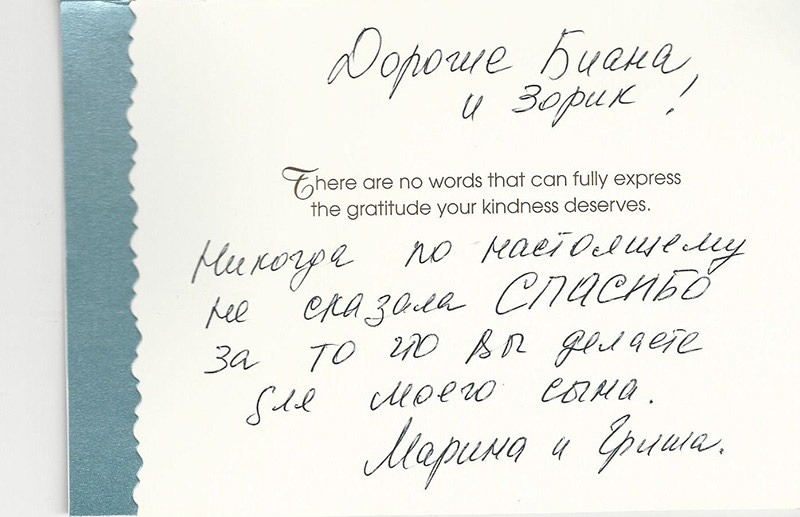 Дорогие Биана,
и Зорик!
There are no words that can fully express
the gratitude your kindness deserves.
Никогда по настоящему
не сказала СПАСИБО
за то что вы делаете
для моего сына.
Марина и Гриша.